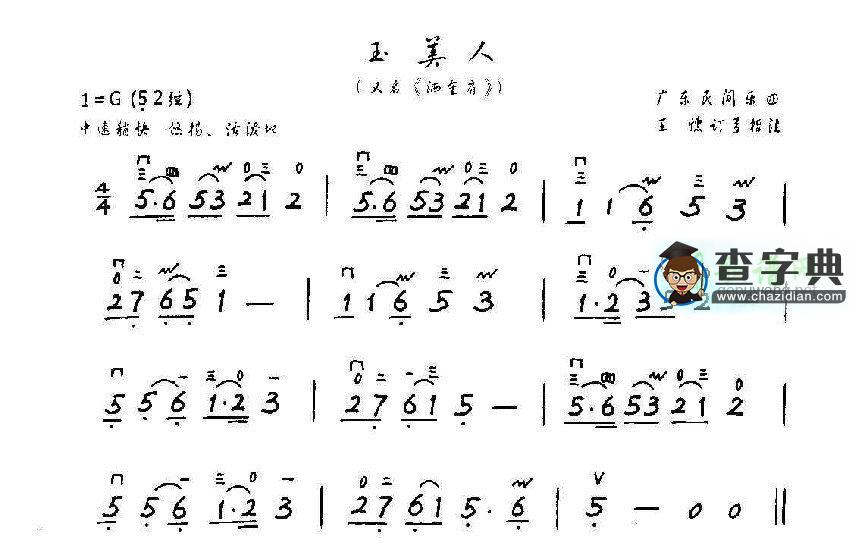 玉美人
(又名《洒金扇》)
1=G (5̣ 2弦)
广东民间乐曲
中速稍快 活泼地
4/4 5·6 53 21 2 | 5·6 53 21 2 | 1 1 6̣ 5 3 |
27̣ 6̣5̣ 1 — | 1 1 6̣ 5 3 | 1·2 3 2
5̣ 5̣ 6̣ 1·2 3 | 27̣ 6̣1 5̣ — | 5·6 53 21 2 |
5̣ 5̣ 6̣ 1·2 3 | 27̣ 6̣1 5̣· 6̣ | 5̣ — 0 0 ‖
查字典
www.chazidian.com